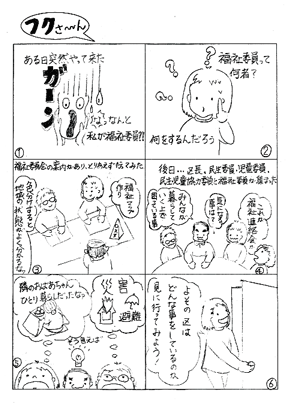 フクさ〜ん
ある日突然やって来た
ガーン
なっなんと
私が福祉委員!!
①
福祉委員って
何者?
何をするんだろう
②
福祉委員会の案内があり、とりあえず行ってみた
福祉マップ
作り
色分けすると
地域の状態がよく分かるな
③
後日…区長、民生委員・児童委員
民生児童協力委員と福祉委員が集まった
ふれあい連絡会
見守り
仕事は?
みんなが
安心して
暮らして
いくこと
④
隣のおばあちゃん
ひとり暮らしだったな
そう言えば
災害
避難
⑤
よその区は
どんな事をしているのか
見に行ってみよう!
⑥